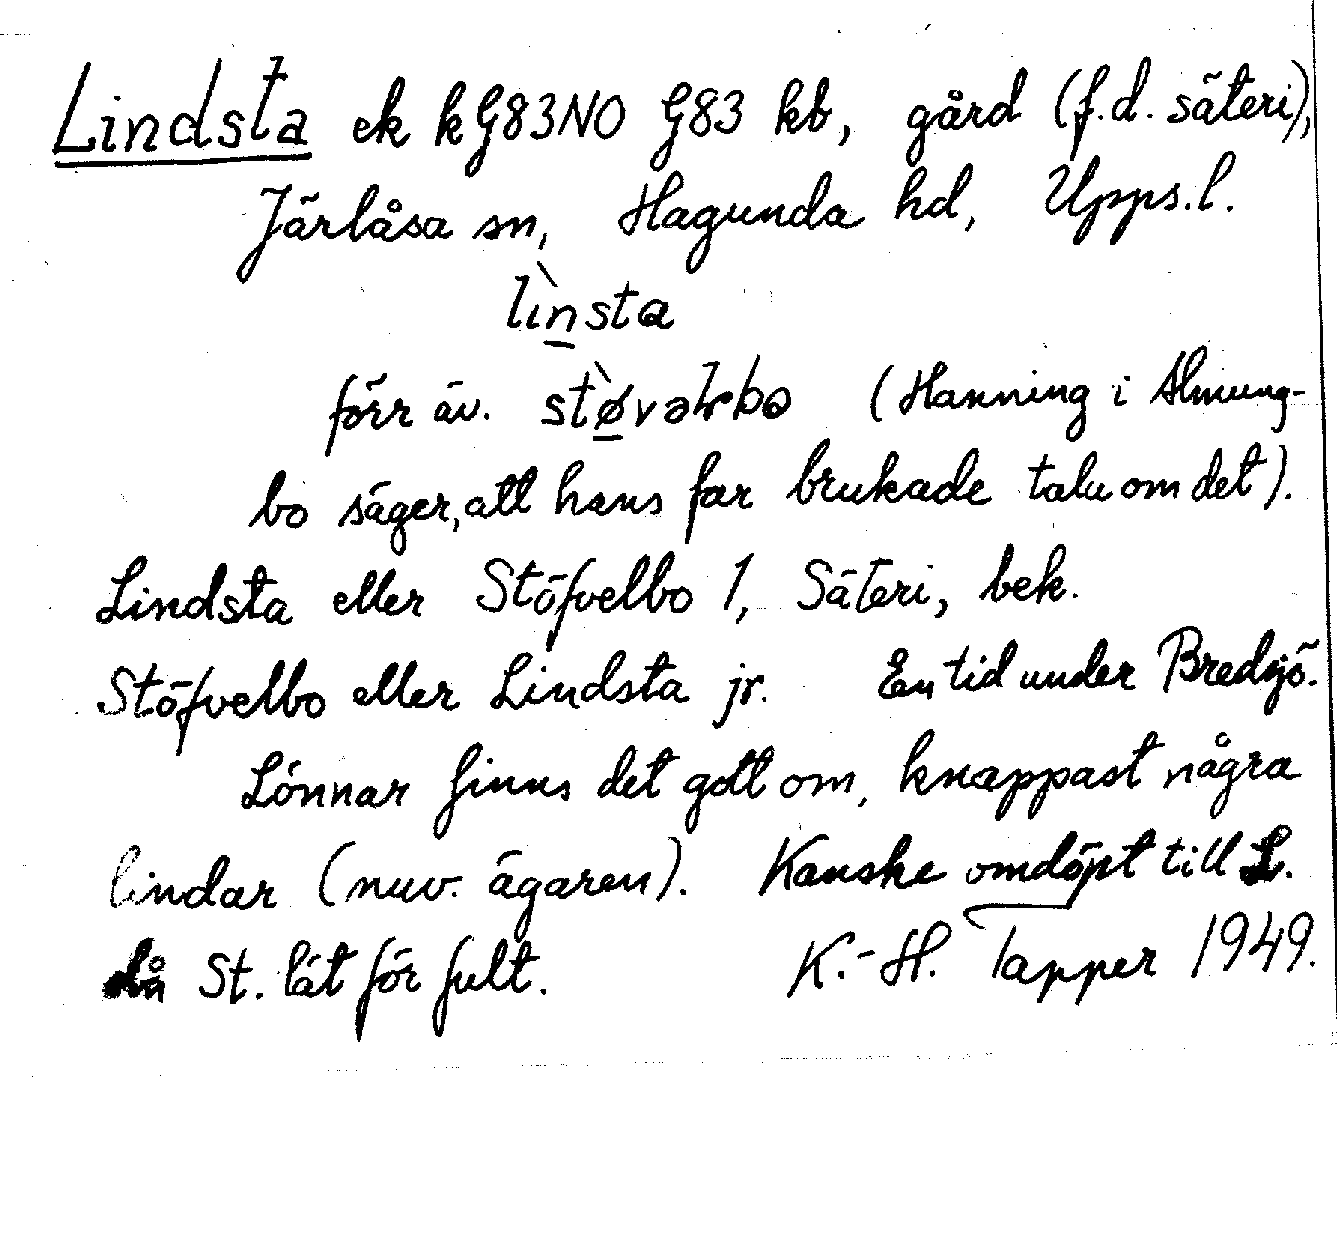 Lindsta ek kG83NO G83 kb, gård (f.d. säteri),
Järlåsa sn, Hagunda hd, Upps.l.
lìnsta
förr äv. stø̀vəłrbo (Hanning i Almung-
bo säger, att hans far brukade tala om det).
Lindsta eller Stöfvelbo 1, Säteri, bek.
Stöfvelbo eller Lindsta jr. En tid under Bredsjö.
Lönnar finns det gott om, knappast några
lindar (nuv. ägaren). Kanske omdöpt till L.
då St. lät för fult. K.-H. Tapper 1949.